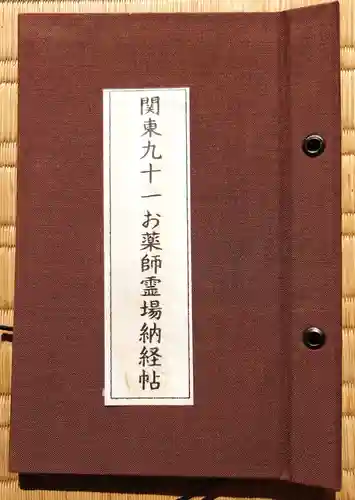 関東九十一お薬師霊場納経帖